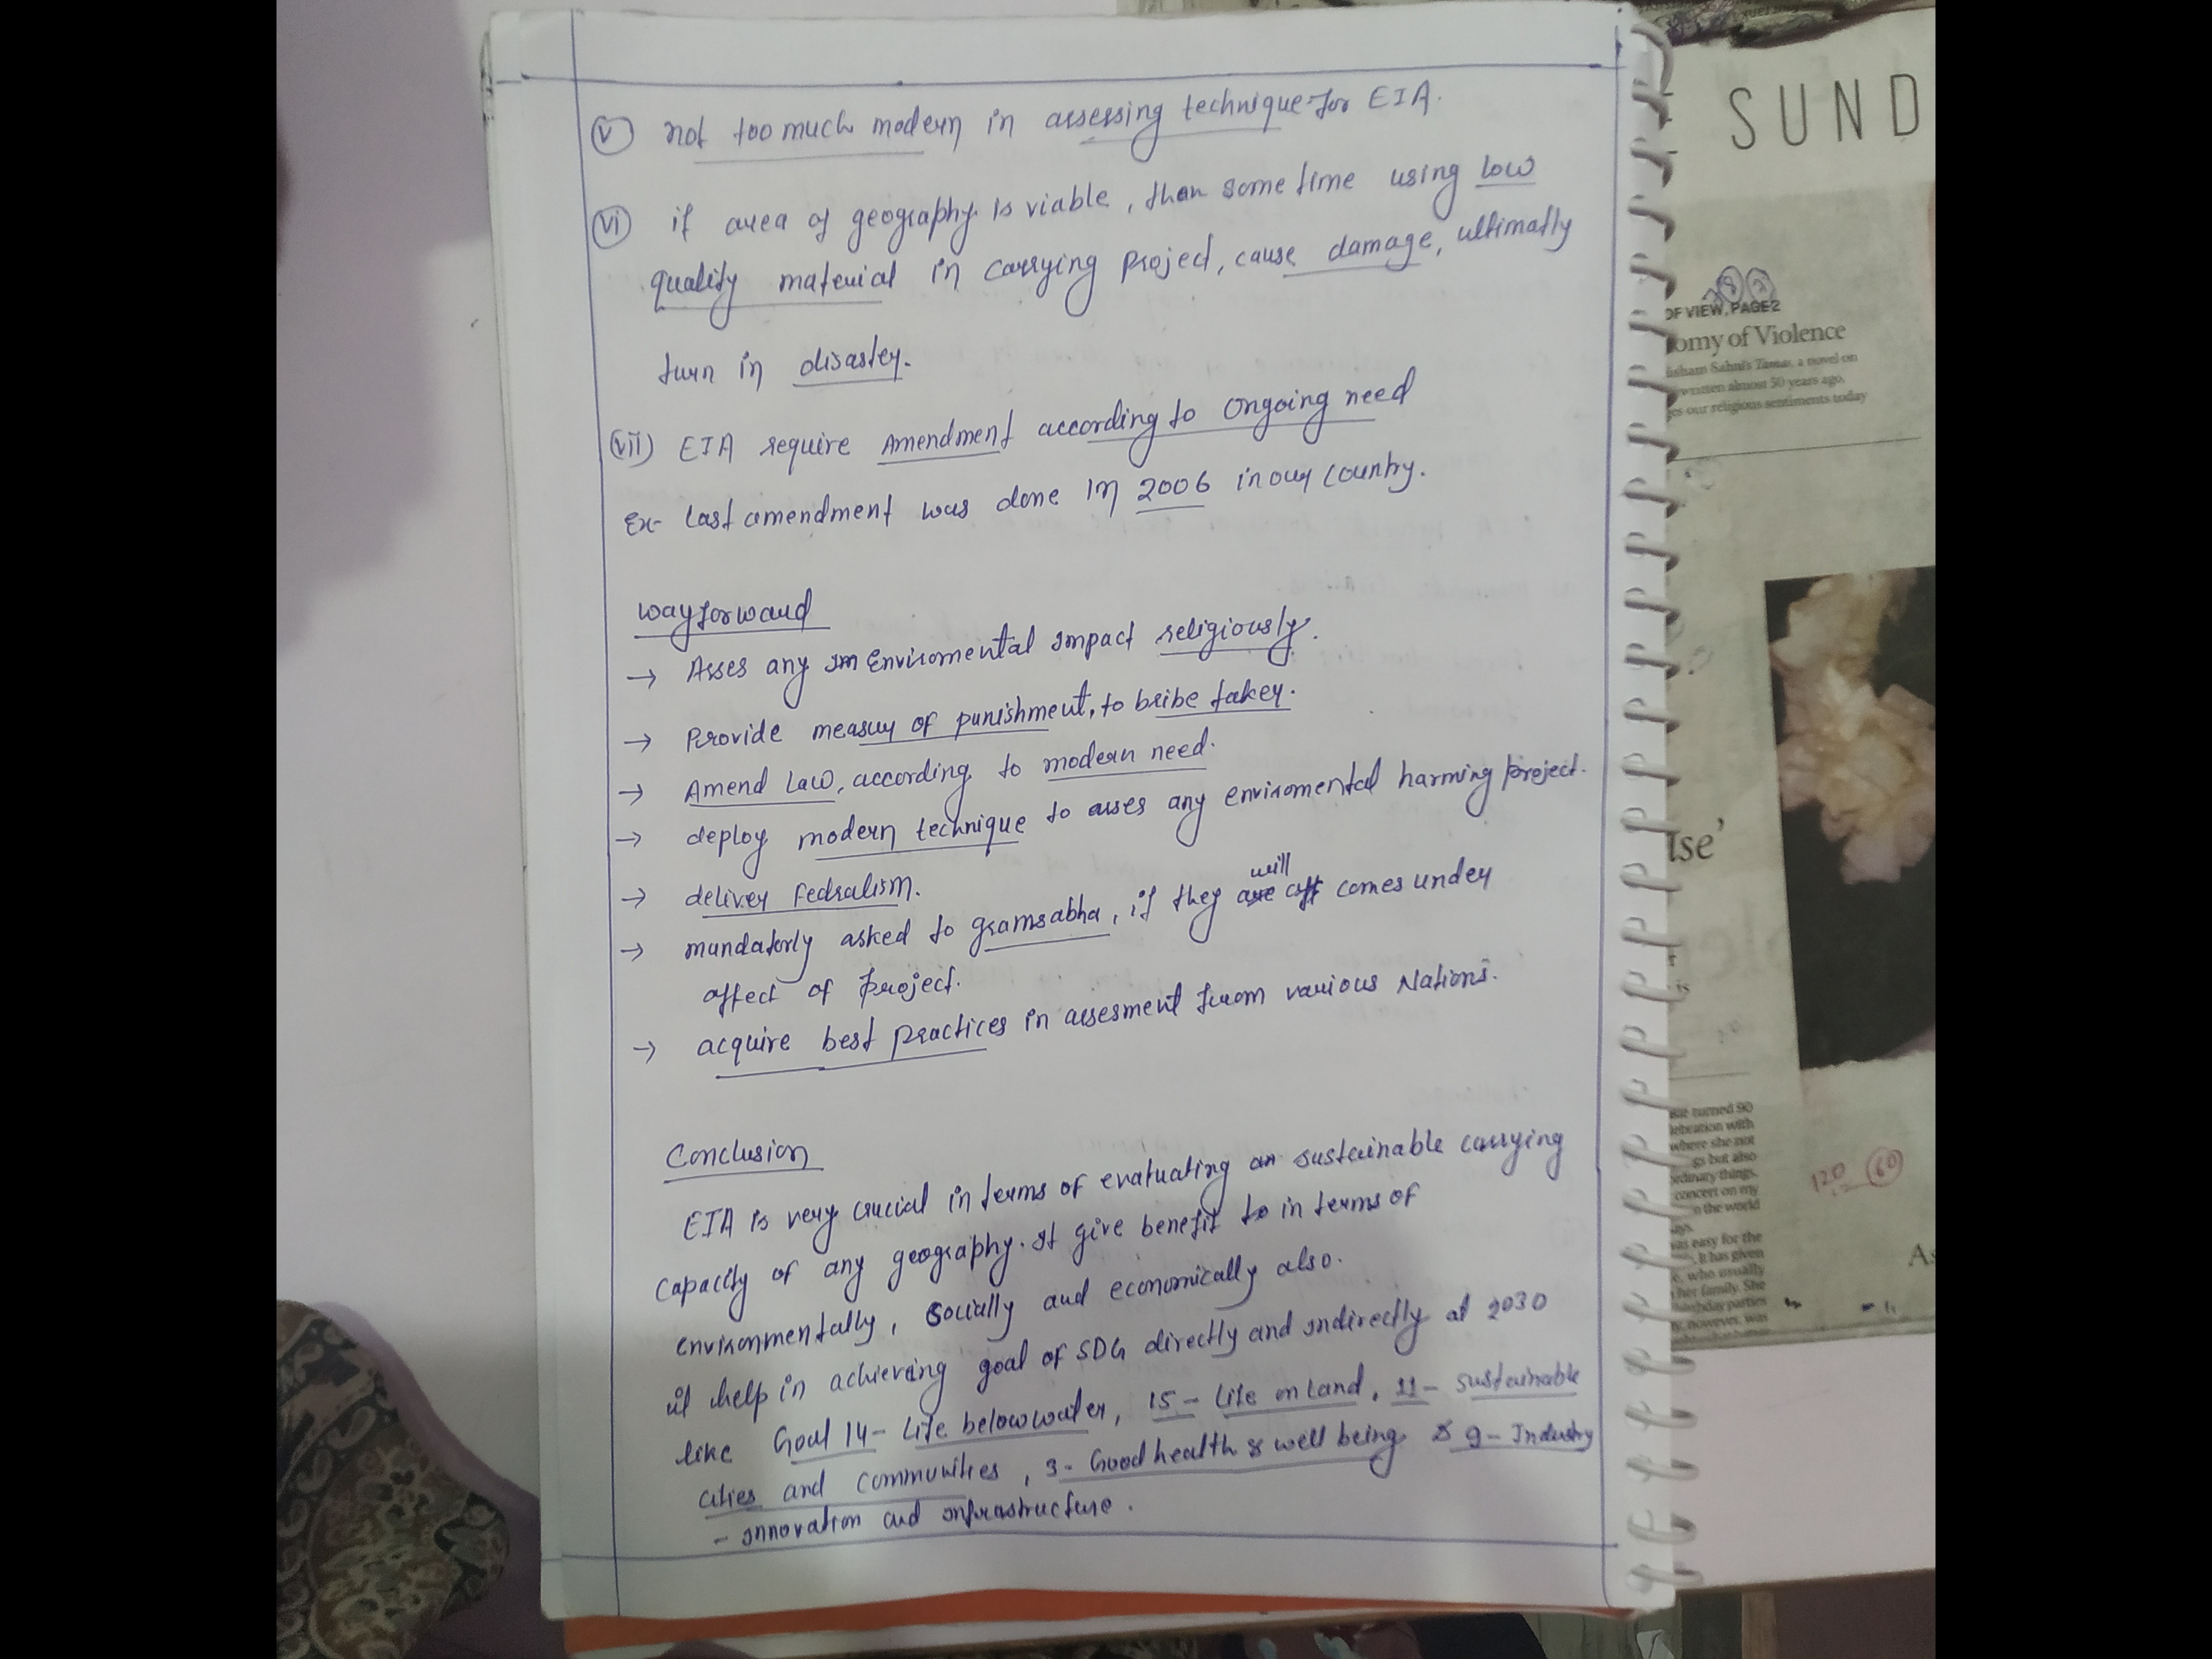 (v) not too much modern in assessing technique for EIA.
(vi) if area of geography is viable, than some time using low
quality material in carrying project, cause damage, ultimatly
turn in disaster.
(vii) EIA require Amendment according to ongoing need
Ex- Last amendment was done in 2006 in our country.
way forward
→ Asses any Enviromental impact religiously.
→ Provide measur of punishment, to bribe taker.
→ Amend Law, according to modern need.
→ deploy modern technique to asses any enviromental harming project.
→ deliver Fedralism.
→ mandatorly asked to gramsabha, if they will comes under
affect of project.
→ acquire best practices in assesment from various Nations.
Conclusion
EIA is very crucial in terms of evaluating an sustainable carrying
capacity of any geography. It give benefit in terms of
environmentally, Socially and economically also.
it help in achieving goal of SDG directly and indirectly at 2030
like Goal 14 - Life below water, 15 - Life on Land, 11 - sustainable
cities and communities, 3 - Good health & well being & 9 - Industry
- innovation and infrastructure.
SUND
OF VIEW, PAGE 2
omy of Violence
isham Sahni's Tamas, a novel on
written almost 50 years ago,
es our religious sentiments today
lse'
turned 90
lebration with
where she not
gs but also
ordinary things,
concert on my
n the world
ays.
was easy for the
It has given
e, who usually
her family. She
birthday parties
however, was
120 60
As